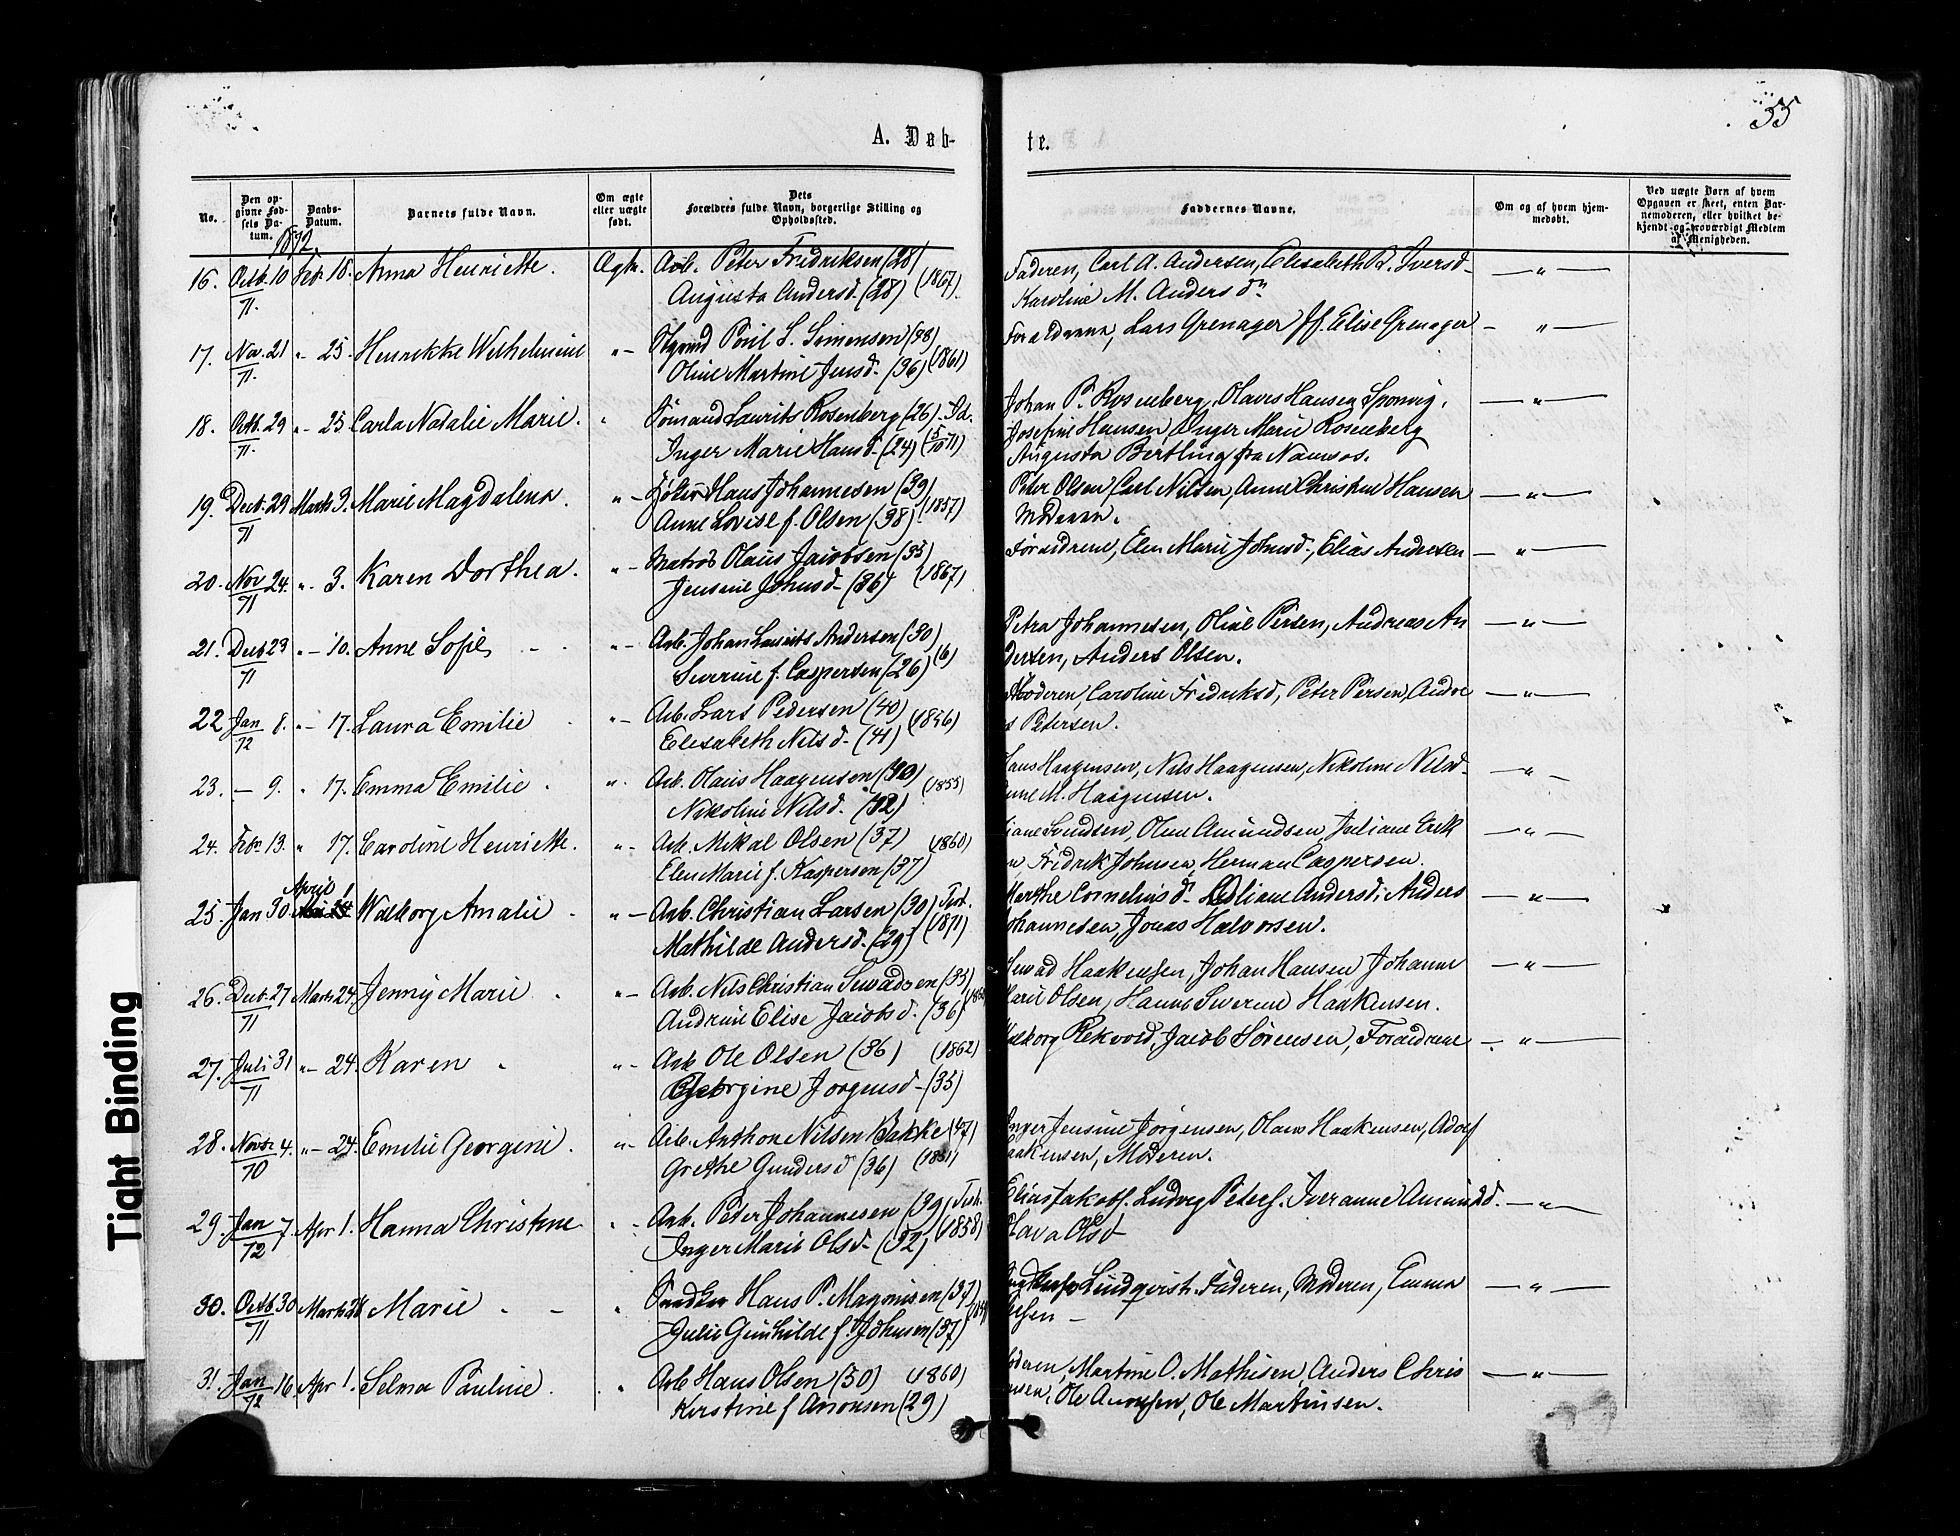 55
A. Døb-
te.
No.
Den opgivne Fødsels Datum.
Daabs-Datum.
Barnets fulde Navn.
Om ægte eller uægte født.
Dets Forældres fulde Navn, borgerlige Stilling og Opholdssted.
Faddernes Navne.
Om og af hvem hjemmedøbt.
Ved uægte Børn af hvem Opgaven er skeet, enten Barnemoderen, eller hvilket bekjendt og troværdigt Medlem af Menigheden.
1872.
16. Octb. 10/71. Feb 18. Anna Henriette. Ægte. Arb. Peter Fridriksen (28)
Augusta Andersd. (28) (1867).
Faderen, Carl A. Andersen, Elisabeth B. Iversd.
Karoline M. Andersdn
17. Nov. 21/71. " - 25. Henrikke Wilhelmine " - Poul S. Simensen (38)
Oline Martine Jensd. (36) (1861)
Forældrene, Lars Grenager Jf. Elise Grenager
18. Octb. 29/71. " - 25 Carla Natalie Marie. " Sømand Laurits Rosenberg (26)
Inger Marie Hansd. (24) (5/10 71)
Johan P. Rosenberg, Olaves Hansen Sponvig,
Josefine Hansen, Inger Marie Rosenberg
Augusta Bertling fra Namsos.
19. Decb. 29/71 Marts 3. Marie Magdalena. " - Hans Johannesen (39)
Anne Lovise f. Olsen (38) (1857)
Peter Olsen, Carl Nilsen, Anne Christine Hansen
Moderen.
20. Nov 24./71 " - 3. Karen Dorthea. " - Matros Olaus Jacobsen (35)
Jensine Johnsd. (36) (1867)
Forældrene, Elen Marie Johnsd., Elias Andresen
21. Decb 23/71 " - 10. Anne Sofie " - Arb. Johan Laurits Andersen (30)
Severine f. Caspersen (26)
Petra Johannesen, Oline Persen, Andreas An
dersen, Anders Olsen.
22 Jan 8./72 " - 17. Laura Emilie " - Arb. Lars Pedersen (40)
Elesabeth Nilsd. (41) (1856)
Moderen, Caroline Fredriksd, Peter Persen, Andre
s Petersen.
23. - 9. " 17. Emma Emilie. " . Arb. Olaus Haagensen (40)
Nikoline Nilsd. (42) (1855)
Hans Haagensen, Nils Haagensen, Nikoline Nilsd.
M. Haagensen.
24. Febr. 13. " 17. Caroline Henriette. " - Arb. Mikal Olsen (37) (1860)
Elen Marie f. Kaspersen (37)
Svendsen, Oline Amundsen, Juliane Erik
Fridrik Johnsen, Herman Caspersen.
25. Jan 30 April 1 Walborg Amalie " - Arb. Christian Larsen (30)
Mathilde Andersd. (29) (1871)
Marthe Cornelius d. Andersd. Anders
Johannesen, Jonas Halvorsen.
26. Decb. 27/71 Marts 24. Jenny Marie " - Arb. Nils Christian (35)
Andrine Elise Jacobsd. (36)
Haakensen, Johan Hansen Johanne
Marie Olsen, Hanne Severine Haakensen.
27. Juli 31/71 " - 24. Karen " - Arb Ole Olsen (36) (1862)
Georgine Jorgensd. (35)
Jacob Sørensen, Forældrene
28. Novbr. 4./70 " - 24. Emilie Georgine. " - Arb. Anthon Nilsen Bakke (47)
Grethe Gundersd (36)
Inger Jensine Jørgensen, Olaus Haakensen, Adolf
Haakensen, Moderen.
29. Jan 7./72 Apr 1. Hanna Christine. " . Arb. Peter Johannesen (39)
Inger Marie Olsd. (32) (1858)
Elias Jakobs. Ludvig Peters. Iveranne Amundsd.
Olava Olsd
30. Octb. 30/71 Marts 28 Marie " Hans P. Magnisen (37)
Julie Gunhilde f. Johnsen (37)
Lindqvist. Faderen, Moderen, Emma
31. Jan 16/72 Apr 1. Selma Pauline. " Arb Hans Olsen (30) (1860)
Kirstine f Aronsen (29)
Martine O. Mathisen, Anders Chris
Ole Martinsen.
Tight Binding